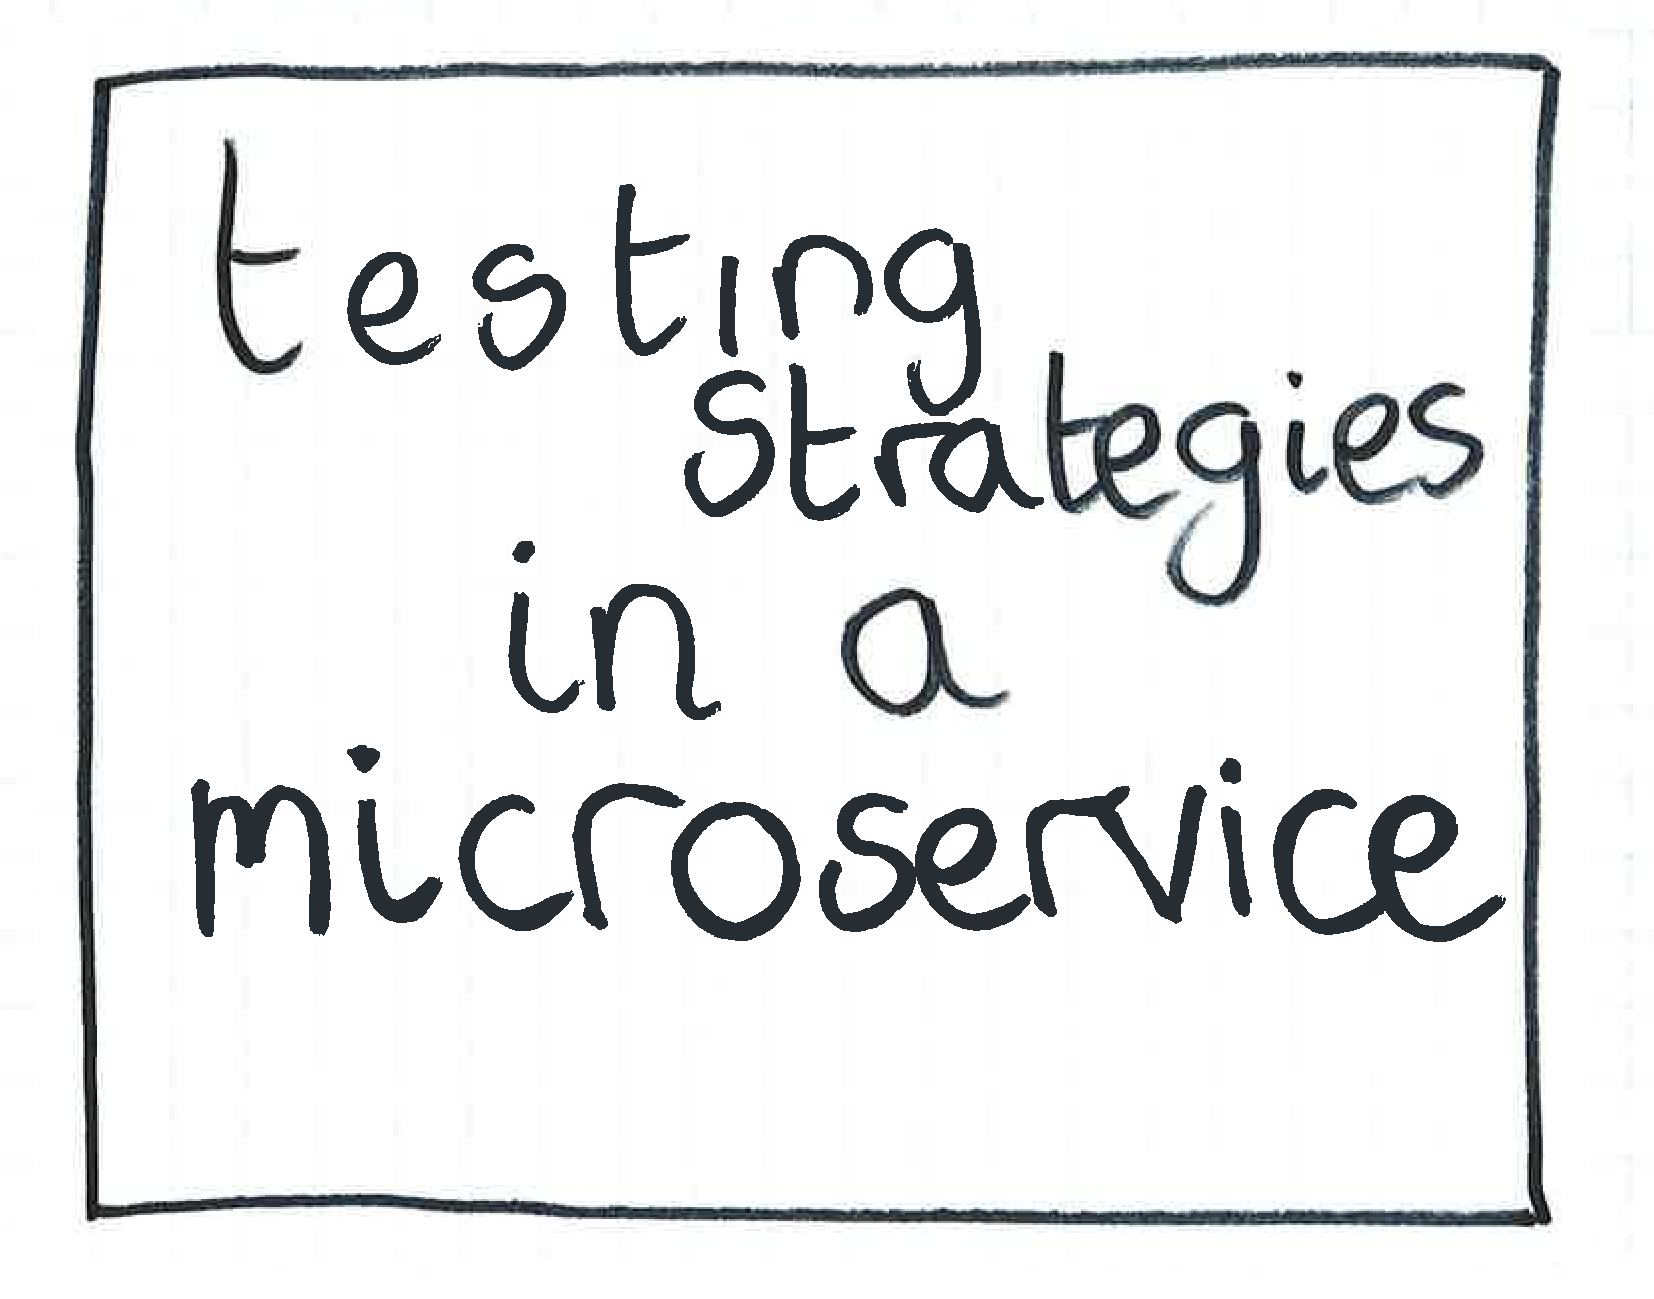 testing
strategies
in a
microservice